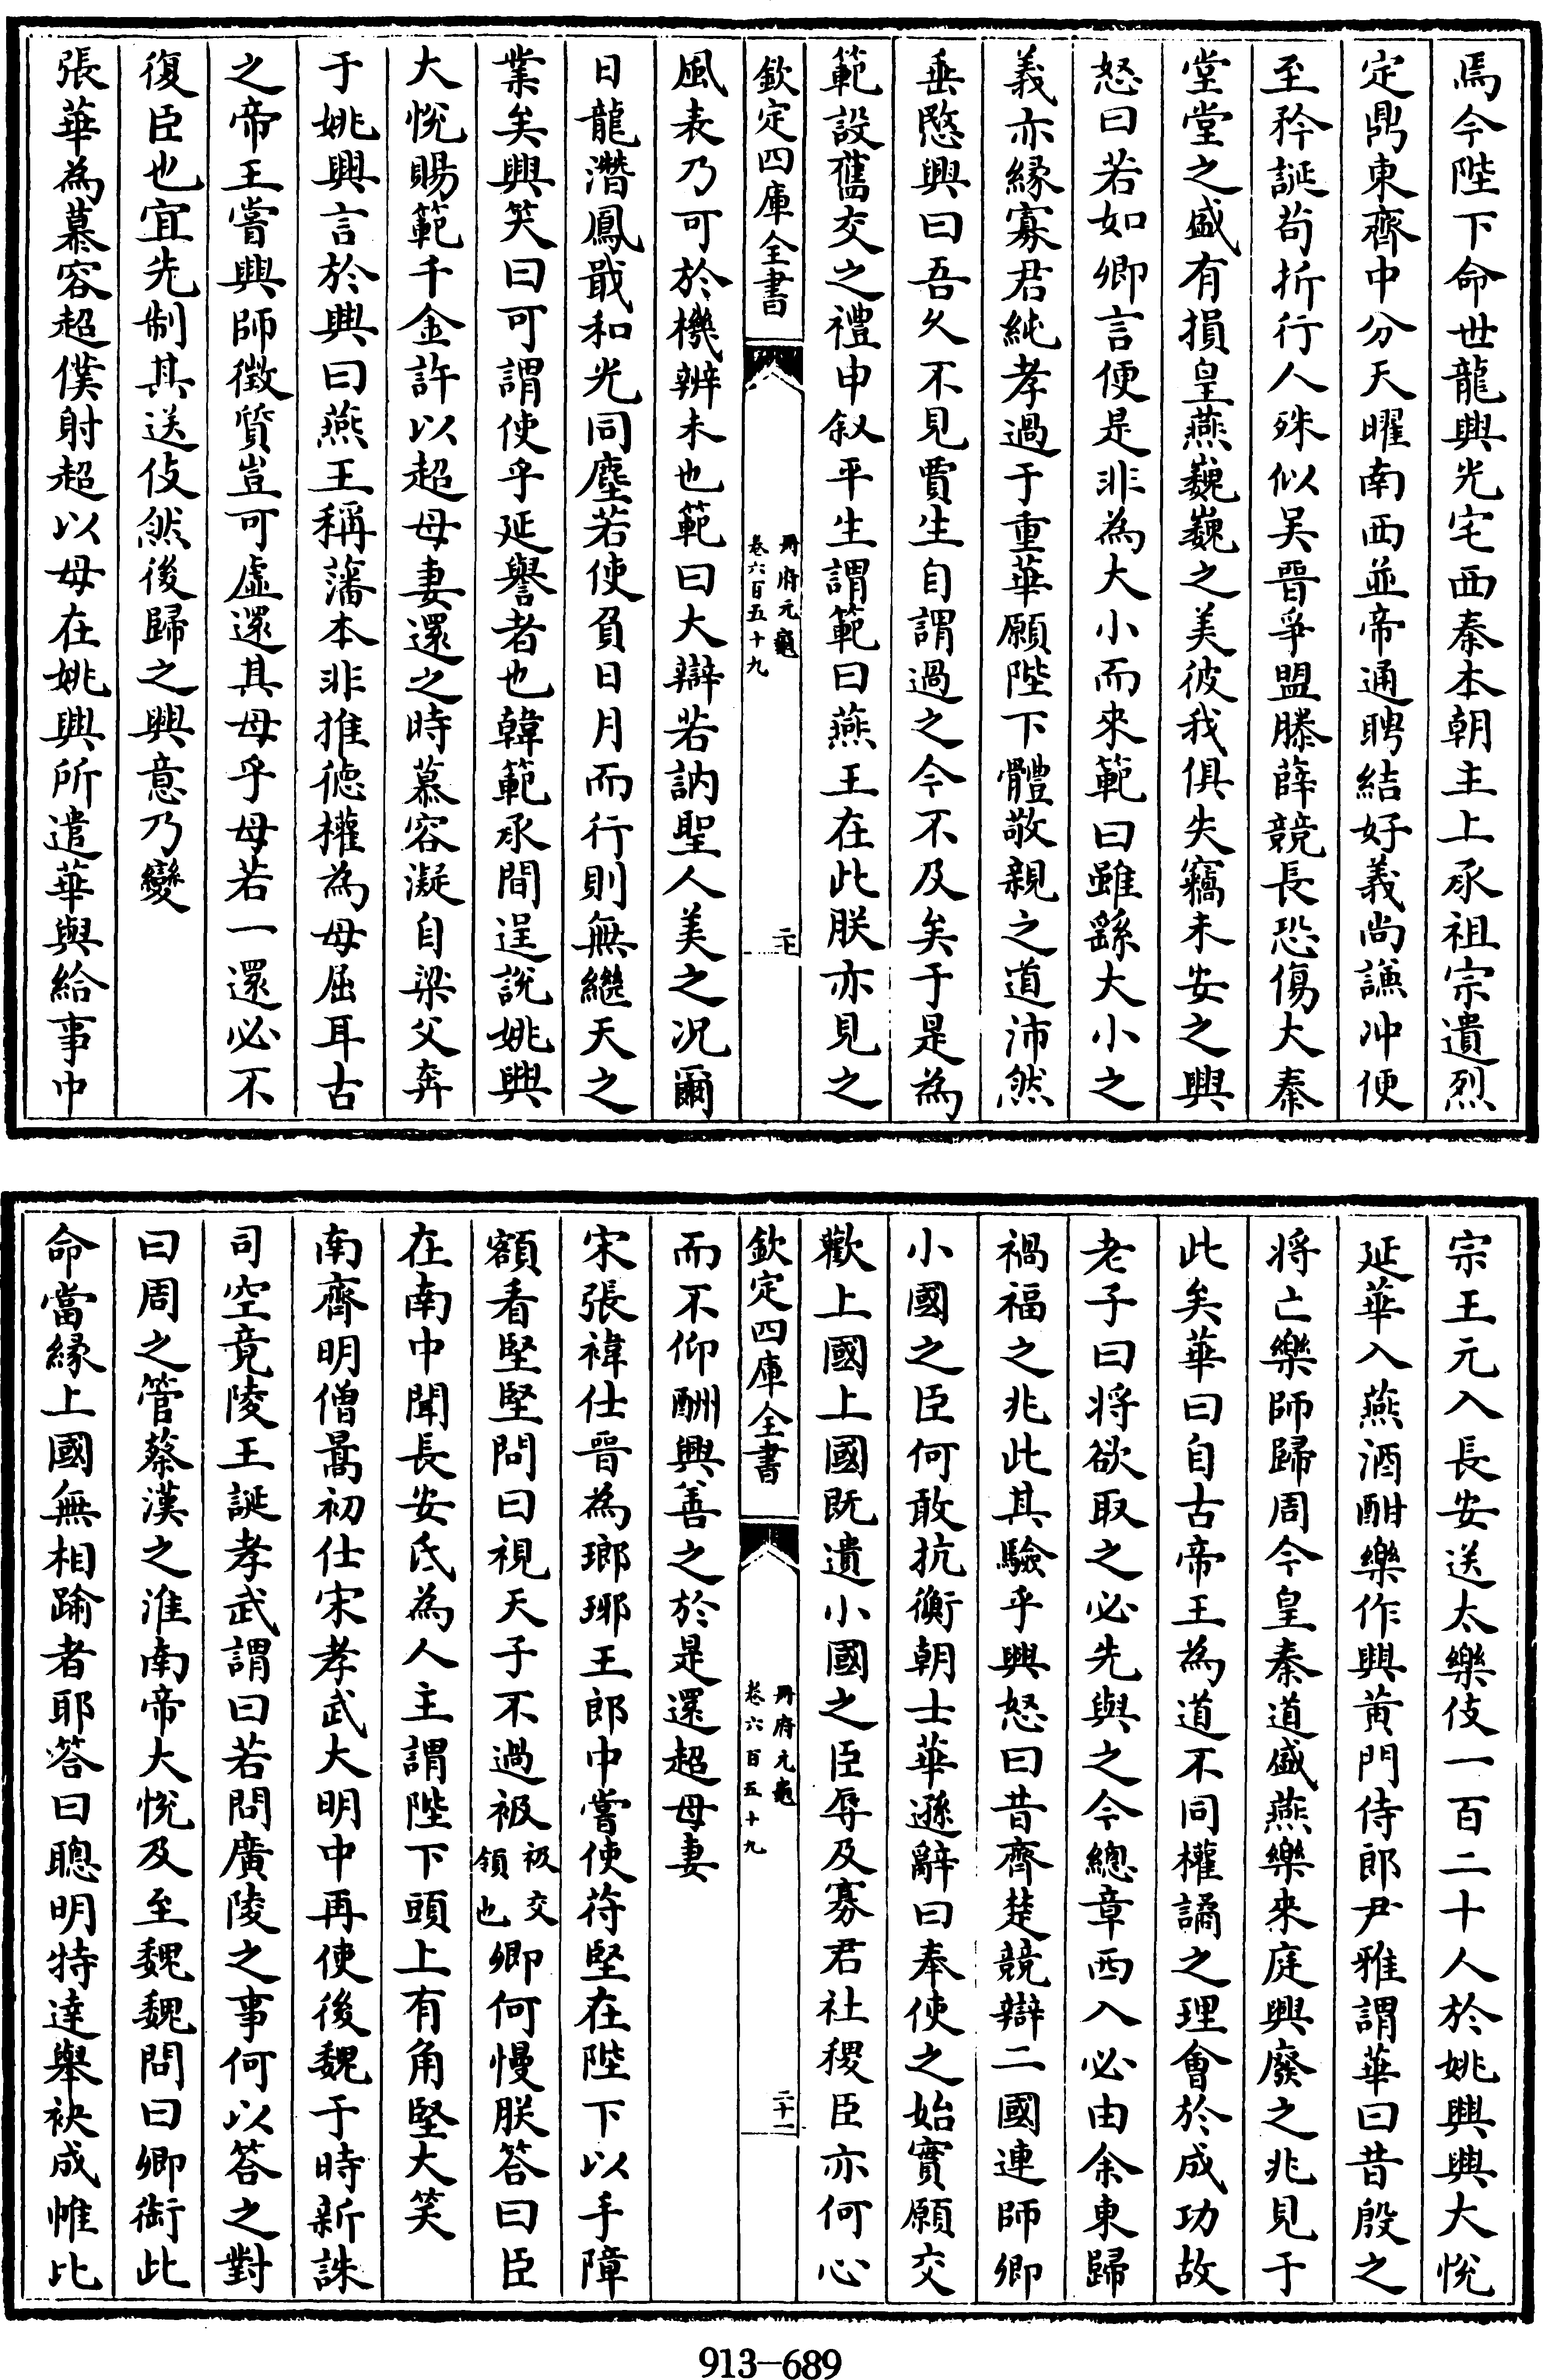 焉今陛下命世龍興光宅西秦本朝主上承祖宗遺烈
定鼎東齊中分天曜南西並帝通聘結好義尚謙沖便
至矜誕茍折行人殊似吳晉爭盟滕薛競長恐傷大秦
堂堂之盛有損皇燕巍巍之美彼我俱失竊未安之興
怒曰若如卿言便是非為大小而來範曰雖繇大小之
義亦縁寡君純孝過于重華願陛下體敬親之道沛然
垂愍興曰吾久不見賈生自謂過之今不及矣于是為
範設舊交之禮申叙平生謂範曰燕王在此朕亦見之
欽定四庫全書
冊府元龜
卷六百五十九
二十
風表乃可於機辨未也範曰大辯若訥聖人美之况爾
日龍潛鳳戢和光同塵若使負日月而行則無繼天之
業矣興笑曰可謂使乎延譽者也韓範承間逞說姚興
大悅賜範千金許以超母妻還之時慕容凝自梁父奔
于姚興言於興曰燕王稱藩本非推德權為母屈耳古
之帝王嘗興師徴質豈可虛還其母乎母若一還必不
復臣也宜先制其送伎然後歸之興意乃變
張華為慕容超僕射超以母在姚興所遣華與給事中
宗王元入長安送太樂伎一百二十人於姚興興大悅
延華入燕酒酣樂作興黄門侍郎尹雅謂華曰昔殷之
將亡樂師歸周今皇秦道盛燕樂來庭興廢之兆見于
此矣華曰自古帝王為道不同權譎之理會於成功故
老子曰將欲取之必先與之今總章西入必由余東歸
禍福之兆此其驗乎興怒曰昔齊楚競辯二國連師卿
小國之臣何敢抗衡朝士華遜辭曰奉使之始實願交
歡上國上國既遺小國之臣辱及寡君社稷臣亦何心
欽定四庫全書
冊府元龜
卷六百五十九
二十一
而不仰酬興善之於是還超母妻
宋張禕仕晉為瑯琊王郎中嘗使苻堅在陛下以手障
額看堅堅問曰視天子不過衱衱交領也卿何慢朕答曰臣
在南中聞長安氐為人主謂陛下頭上有角堅大笑
南齊明僧暠初仕宋孝武大明中再使後魏于時新誅
司空竟陵王誕孝武謂曰若問廣陵之事何以答之對
曰周之管蔡漢之淮南帝大悅及至魏魏問曰卿銜此
命當縁上國無相踰者耶答曰聰明特達舉袂成帷比
913—689